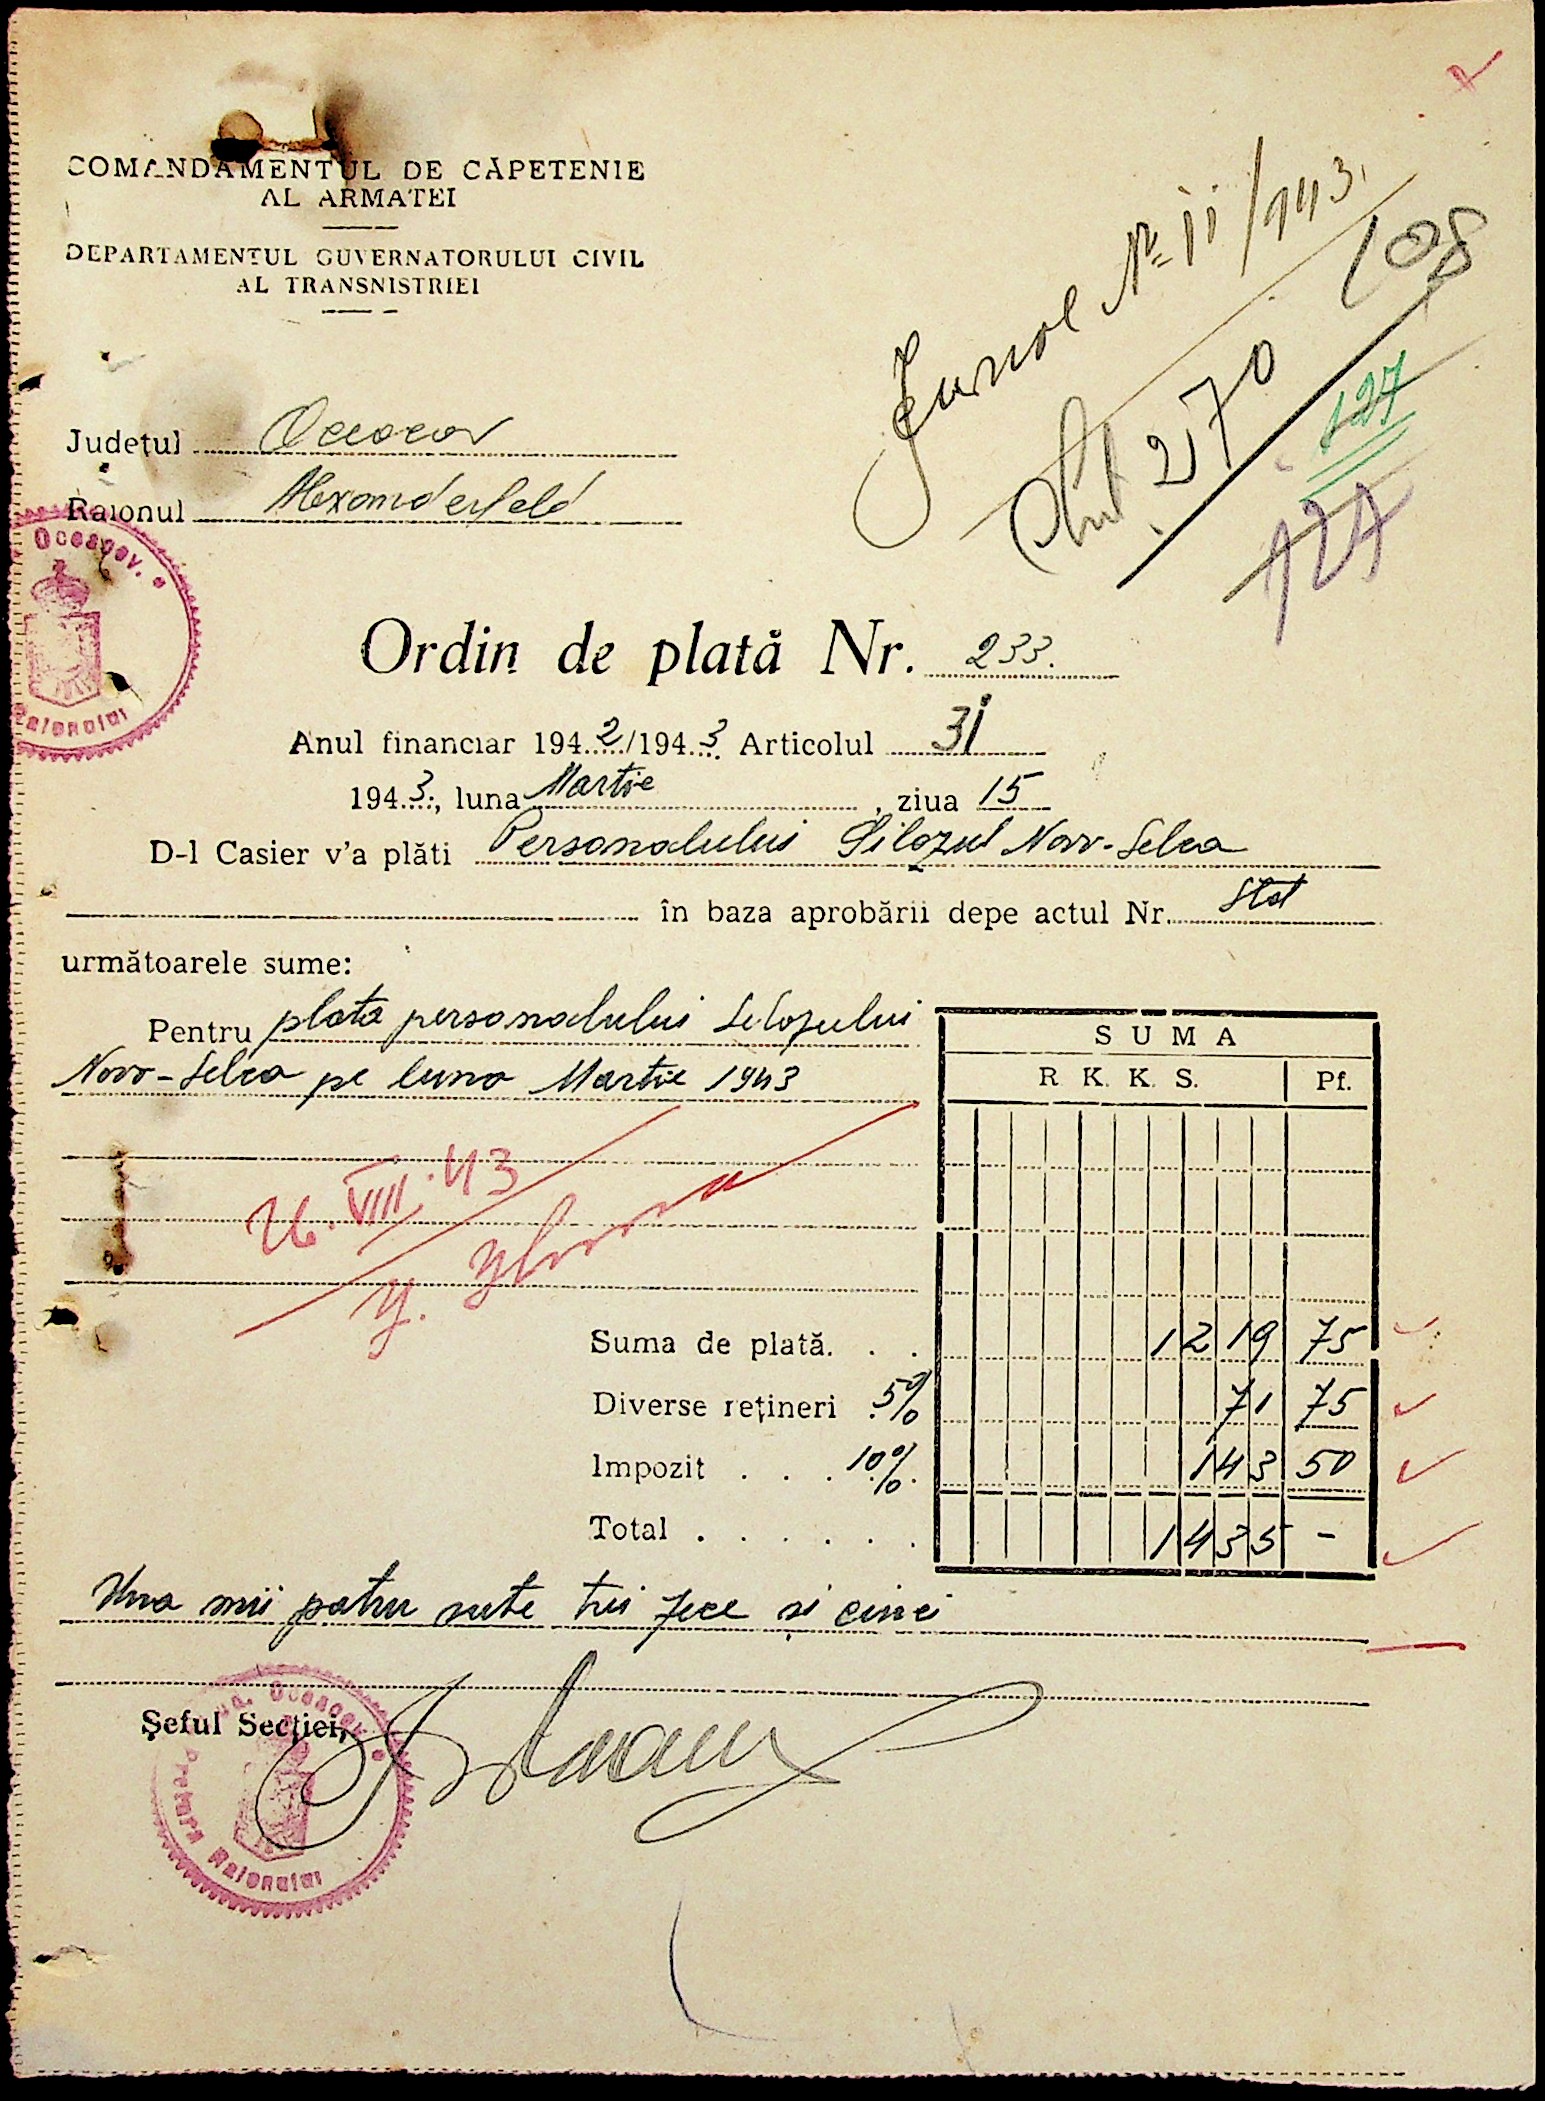 COMANDAMENTUL DE CĂPETENIE
AL ARMATEI
DEPARTAMENTUL GUVERNATORULUI CIVIL
AL TRANSNISTRIEI
Jurnal Nr. 11/943
108
270
127
127
Județul Oceacov
Raionul Alexanderfeld
Oceacov.
Raionului
Ordin de plată Nr. 233.
Anul financiar 1942/1943 Articolul 31
1943, luna Martie, ziua 15
D-l Casier v'a plăti Personalului Silozul Novo-Selca
în baza aprobării depe actul Nr. Stat
următoarele sume:
Pentru plata personalului Silozului
Novo-Selca pe luna Martie 1943
SUMA
R. K. K. S. Pf.
26.VIII.43
Suma de plată. . . 1219 75
Diverse rețineri 5% 71 75
Impozit . . . 10% 143 50
Total . . . . . . 1435 -
Una mii patru sute trei zece și cinci
Șeful Secției,
Jud. Oceacov
Pretura Raionului